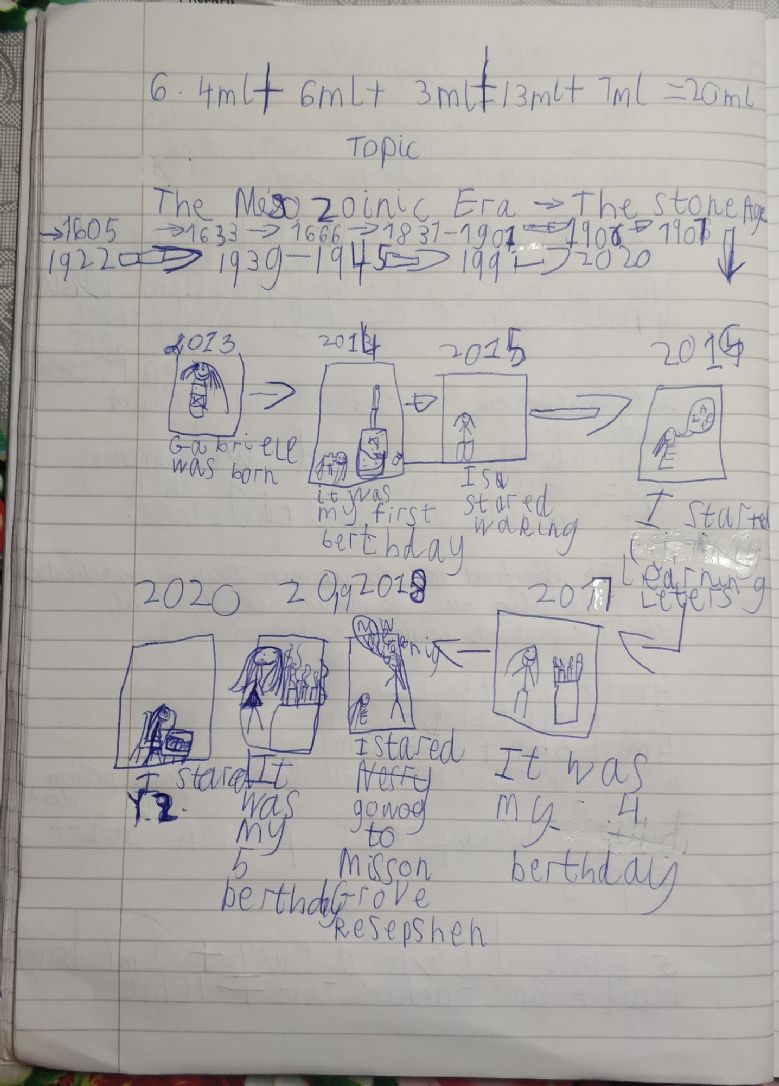 6. 4ml+ 6ml+ 3ml=13ml+ 7ml =20ml
Topic
The Mesozoinic Era → The stone Age
→1605 →1633 → 1666 → 1837-1901 → 1901
1922 → 1939-1945 → 199 → 2020
2013 2014 2015 2016
Gabriele was born
it was my first berthday
I stared waking
I started Learning Leters
2020 2019 2018 2017
I stared Y.2.
It was my 5 berthday
I stared gowog to Misson Grove Resepshen
It was my 4 berthday